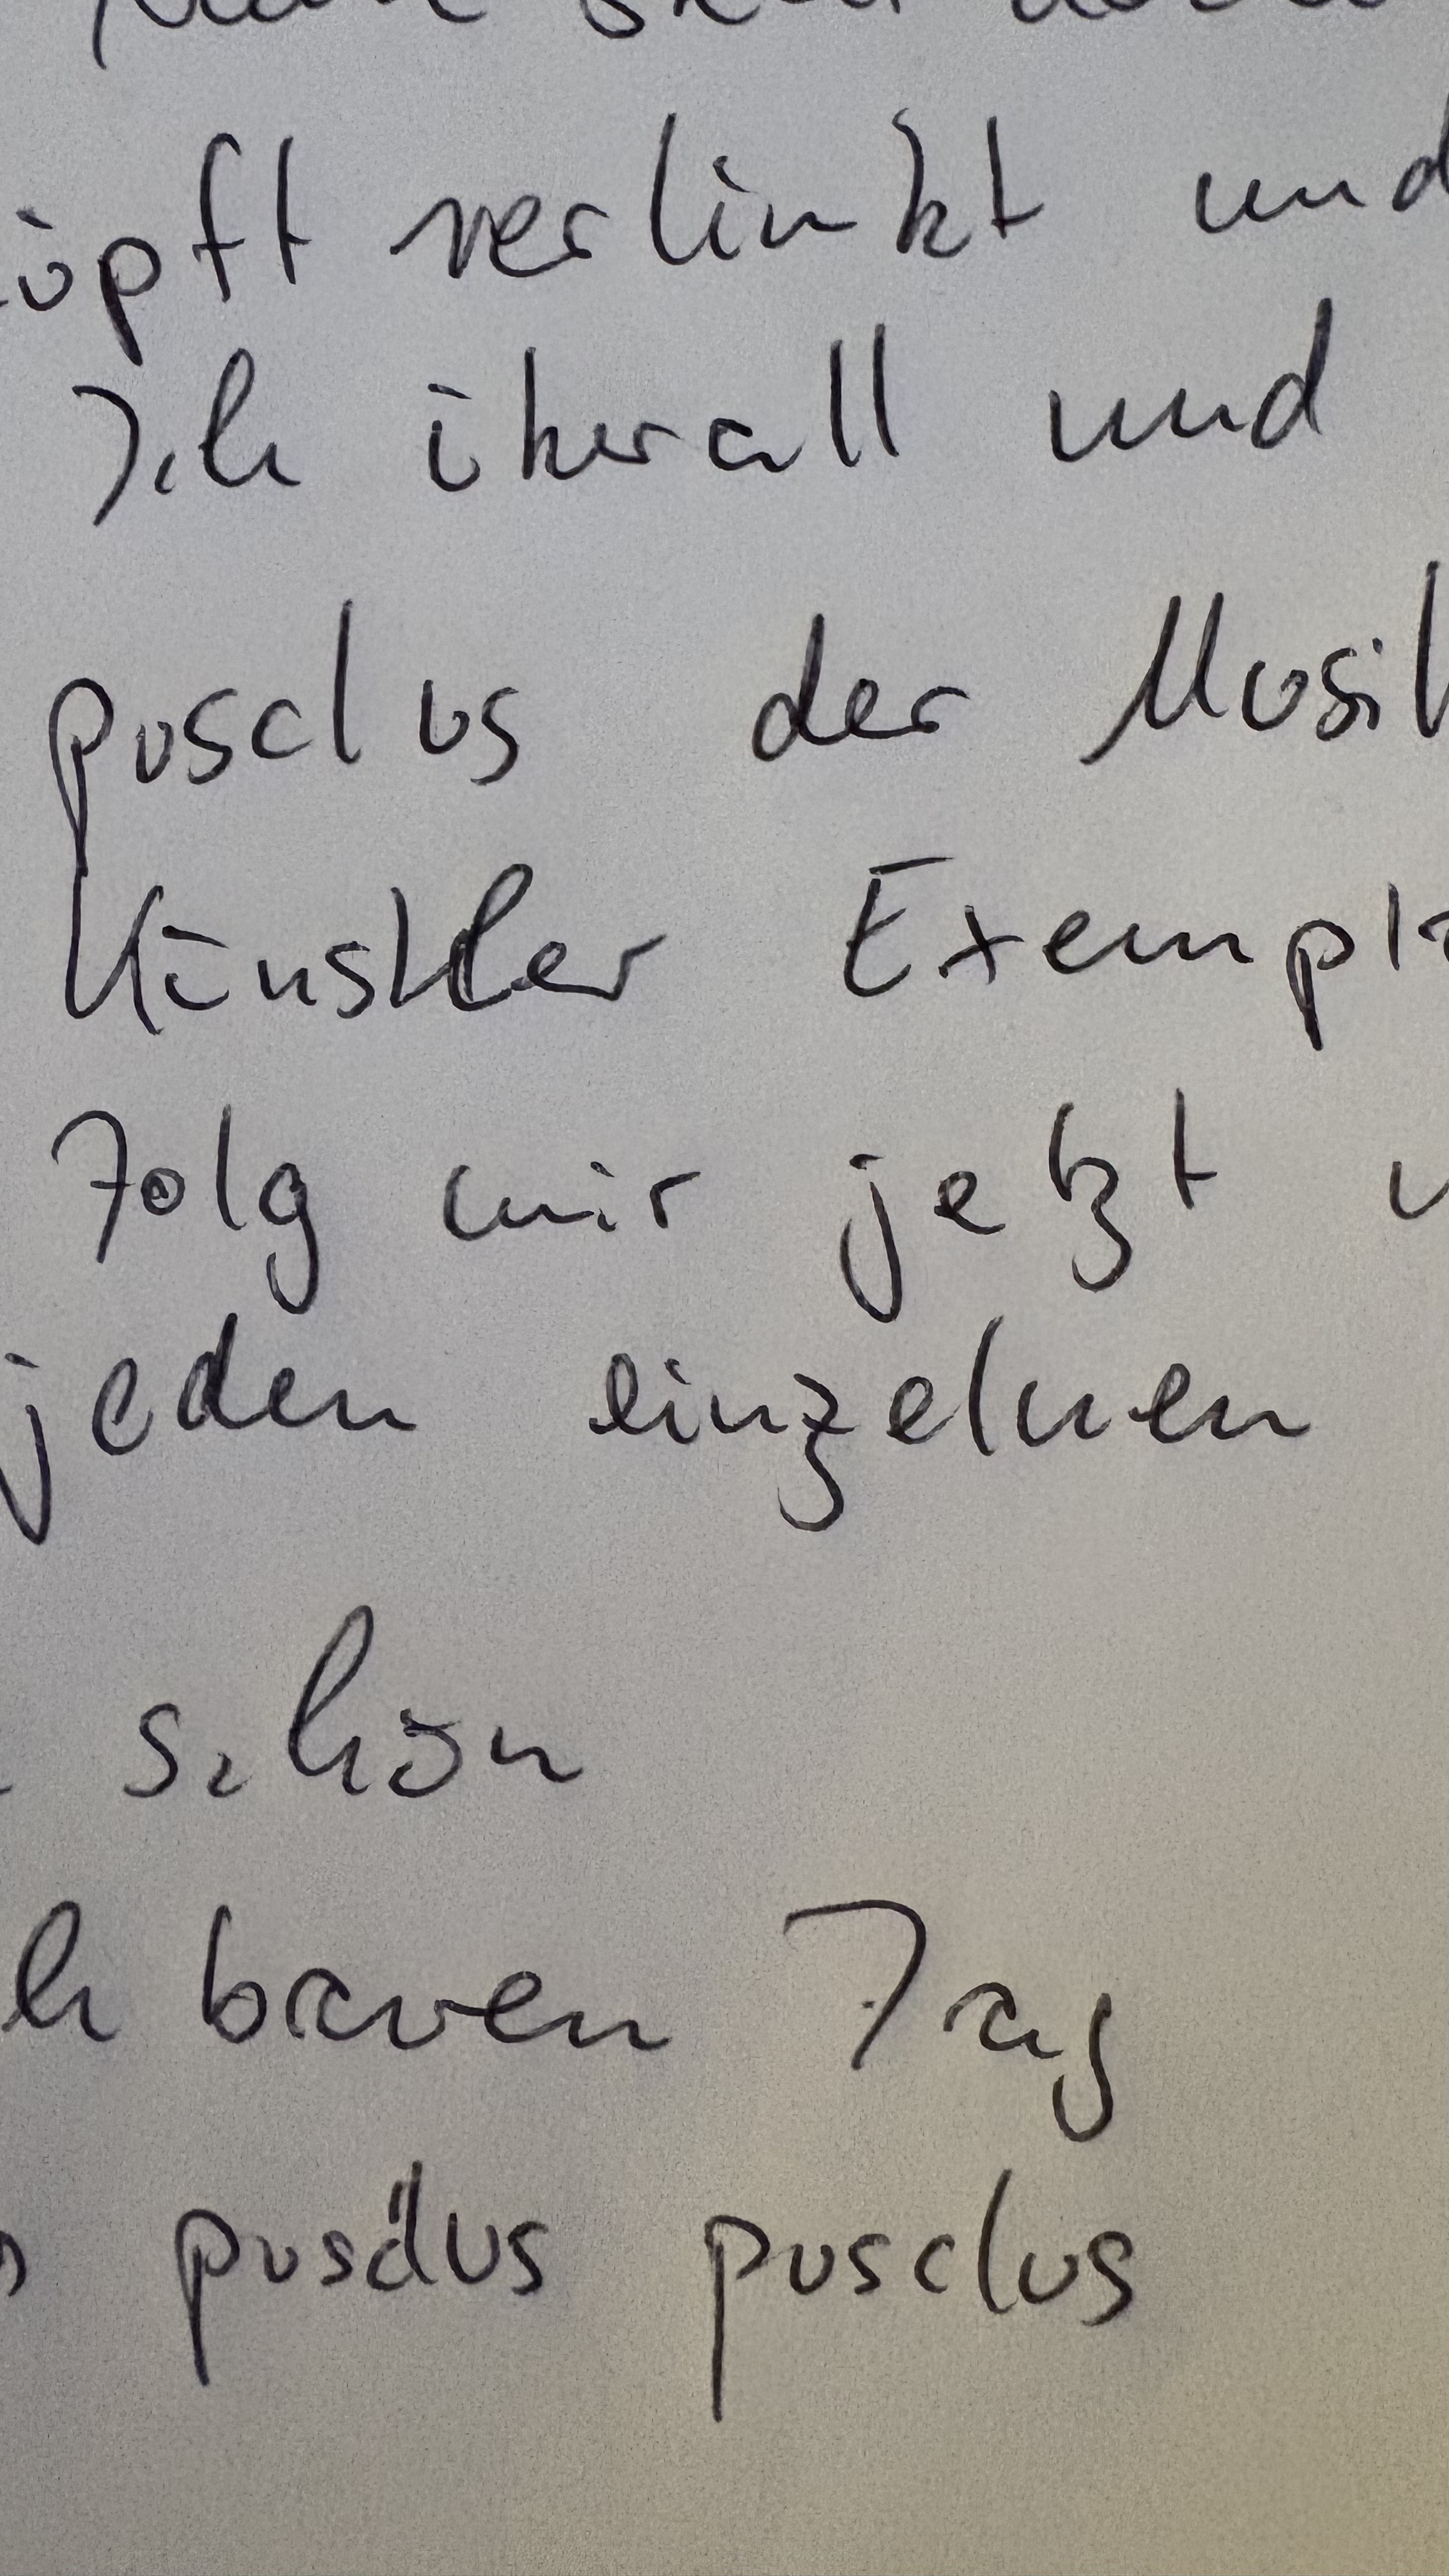 üpft verlinkt und
Ich überall und
pusclus der Musik
Künstler Exempla
Folg mir jetzt u
jeden einzelnen
schön
ch baren Tag
pusclus pusclus